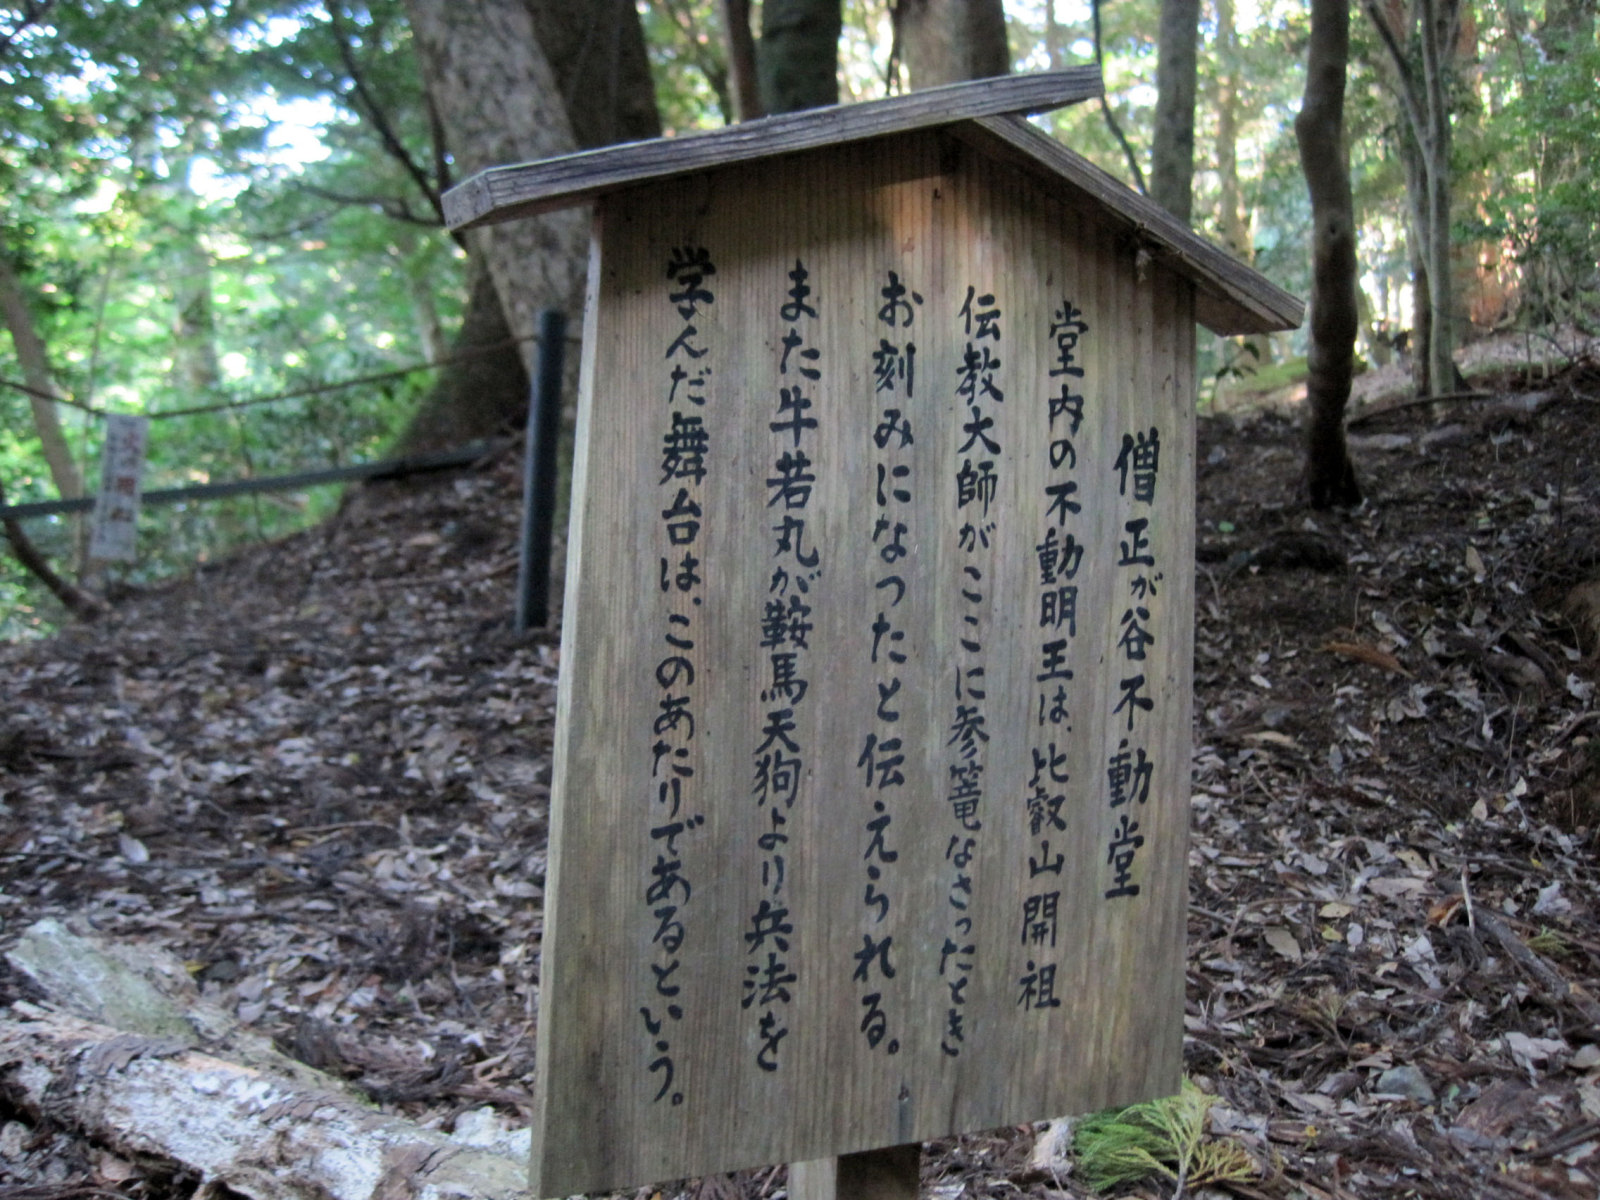 僧正が谷不動堂
堂内の不動明王は、比叡山開祖
伝教大師がここに参篭なさったとき
お刻みになつたと伝えられる。
また牛若丸が鞍馬天狗より兵法を
学んだ舞台は、このあたりであるという。